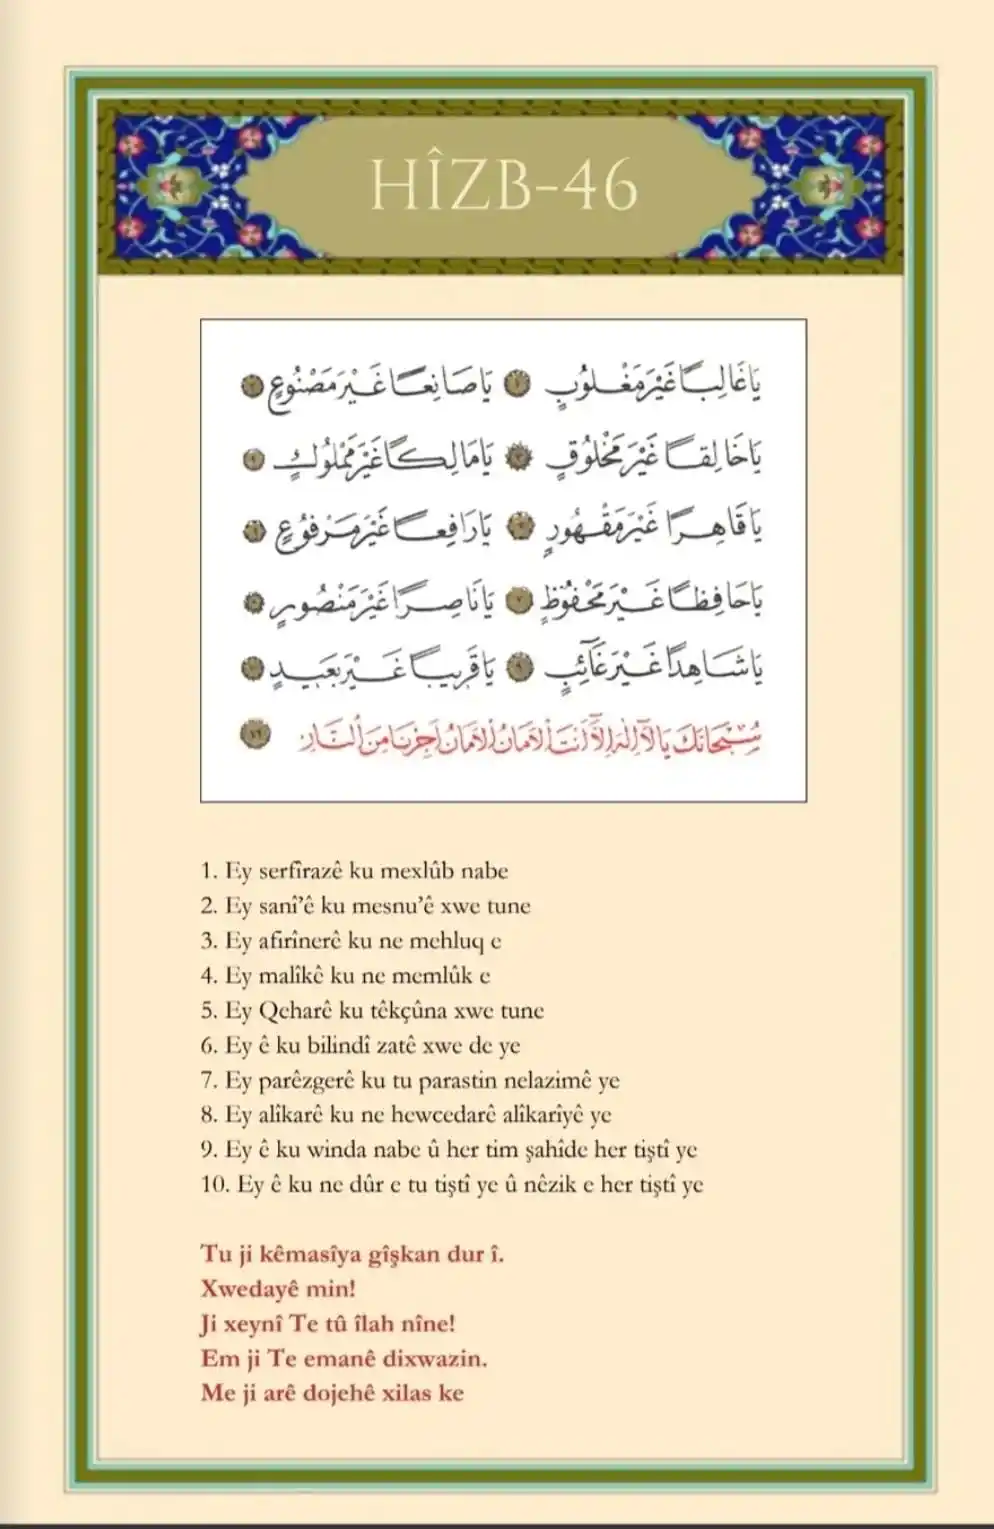 HÎZB-46
يَا غَالِبًا غَيْرَ مَغْلُوبٍ يَا صَانِعًا غَيْرَ مَصْنُوعٍ
يَا خَالِقًا غَيْرَ مَخْلُوقٍ يَا مَالِكًا غَيْرَ مَمْلُوكٍ
يَا قَاهِرًا غَيْرَ مَقْهُورٍ يَا رَافِعًا غَيْرَ مَرْفُوعٍ
يَا حَافِظًا غَيْرَ مَحْفُوظٍ يَا نَاصِرًا غَيْرَ مَنْصُورٍ
يَا شَاهِدًا غَيْرَ غَآئِبٍ يَا قَرِيبًا غَيْرَ بَعِيدٍ
سُبْحَانَكَ يَا لَآ اِلٰهَ اِلَّآ اَنْتَ الْاَمَانُ الْاَمَانُ اَجِرْنَا مِنَ النَّارِ
1. Ey serfîrazê ku mexlûb nabe
2. Ey sanî’ê ku mesnu’ê xwe tune
3. Ey afirînerê ku ne mehluq e
4. Ey malîkê ku ne memlûk e
5. Ey Qeharê ku têkçûna xwe tune
6. Ey ê ku bilindî zatê xwe de ye
7. Ey parêzgerê ku tu parastin nelazimê ye
8. Ey alîkarê ku ne hewcedarê alîkarîyê ye
9. Ey ê ku winda nabe û her tim şahîde her tiştî ye
10. Ey ê ku ne dûr e tu tiştî ye û nêzik e her tiştî ye
Tu ji kêmasîya gîşkan dur î.
Xwedayê min!
Ji xeynî Te tû îlah nîne!
Em ji Te emanê dixwazin.
Me ji arê dojehê xilas ke